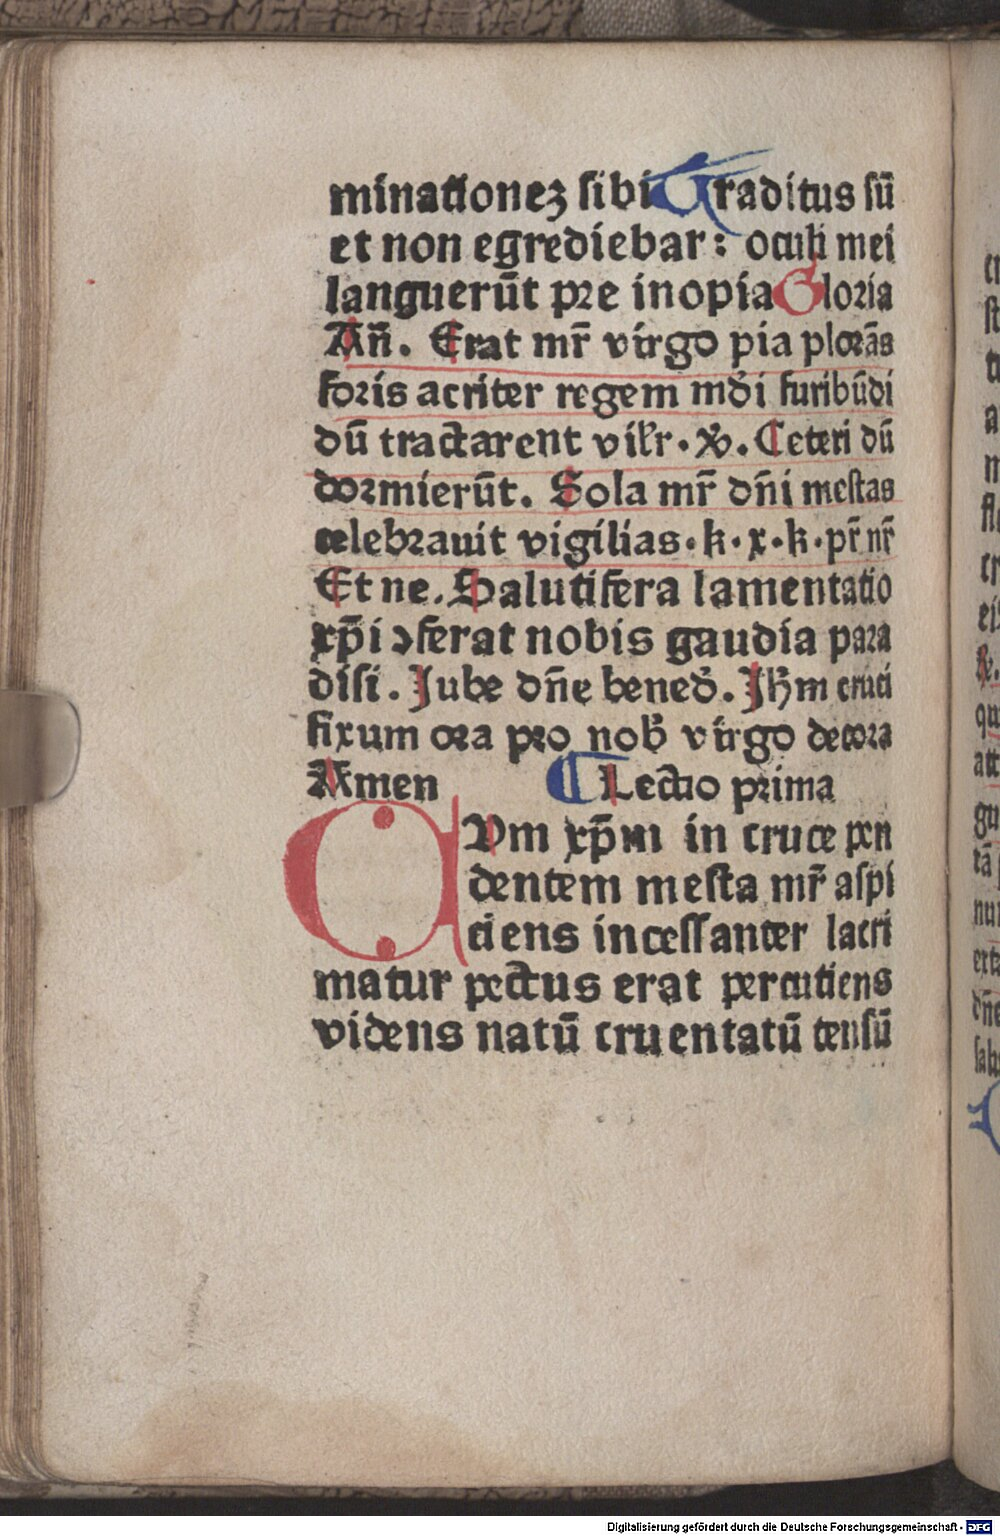 minationeꝫ ſibi Traditus ſū
et non egrediebar : oculi mei
languerūt pre inopia Gloria
An̄. Erat mr̄ virgo pia plorās
foris acriter regem mūdi furibūdi
dū tractarent vilr̄. ꝟ. Ceteri dū
dormierūt. Sola mr̄ dn̄i meſtas
celebrauit vigilias. k. x. k. pr̄ nr̄
Et ne. Salutifera lamentatio
xp̄i ↄferat nobis gaudia para
diſi. Jube dn̄e bened̄. Jh̄m cruci
fixum ora pro nob̄ virgo decora
Amen Lectio prima
CVm xp̄m in cruce pen
dentem meſta mr̄ aſpi
ciens inceſſanter lacri
matur pectus erat percutiens
videns natū cruentatū tenſū
Digitalisierung gefördert durch die Deutsche Forschungsgemeinschaft - DFG